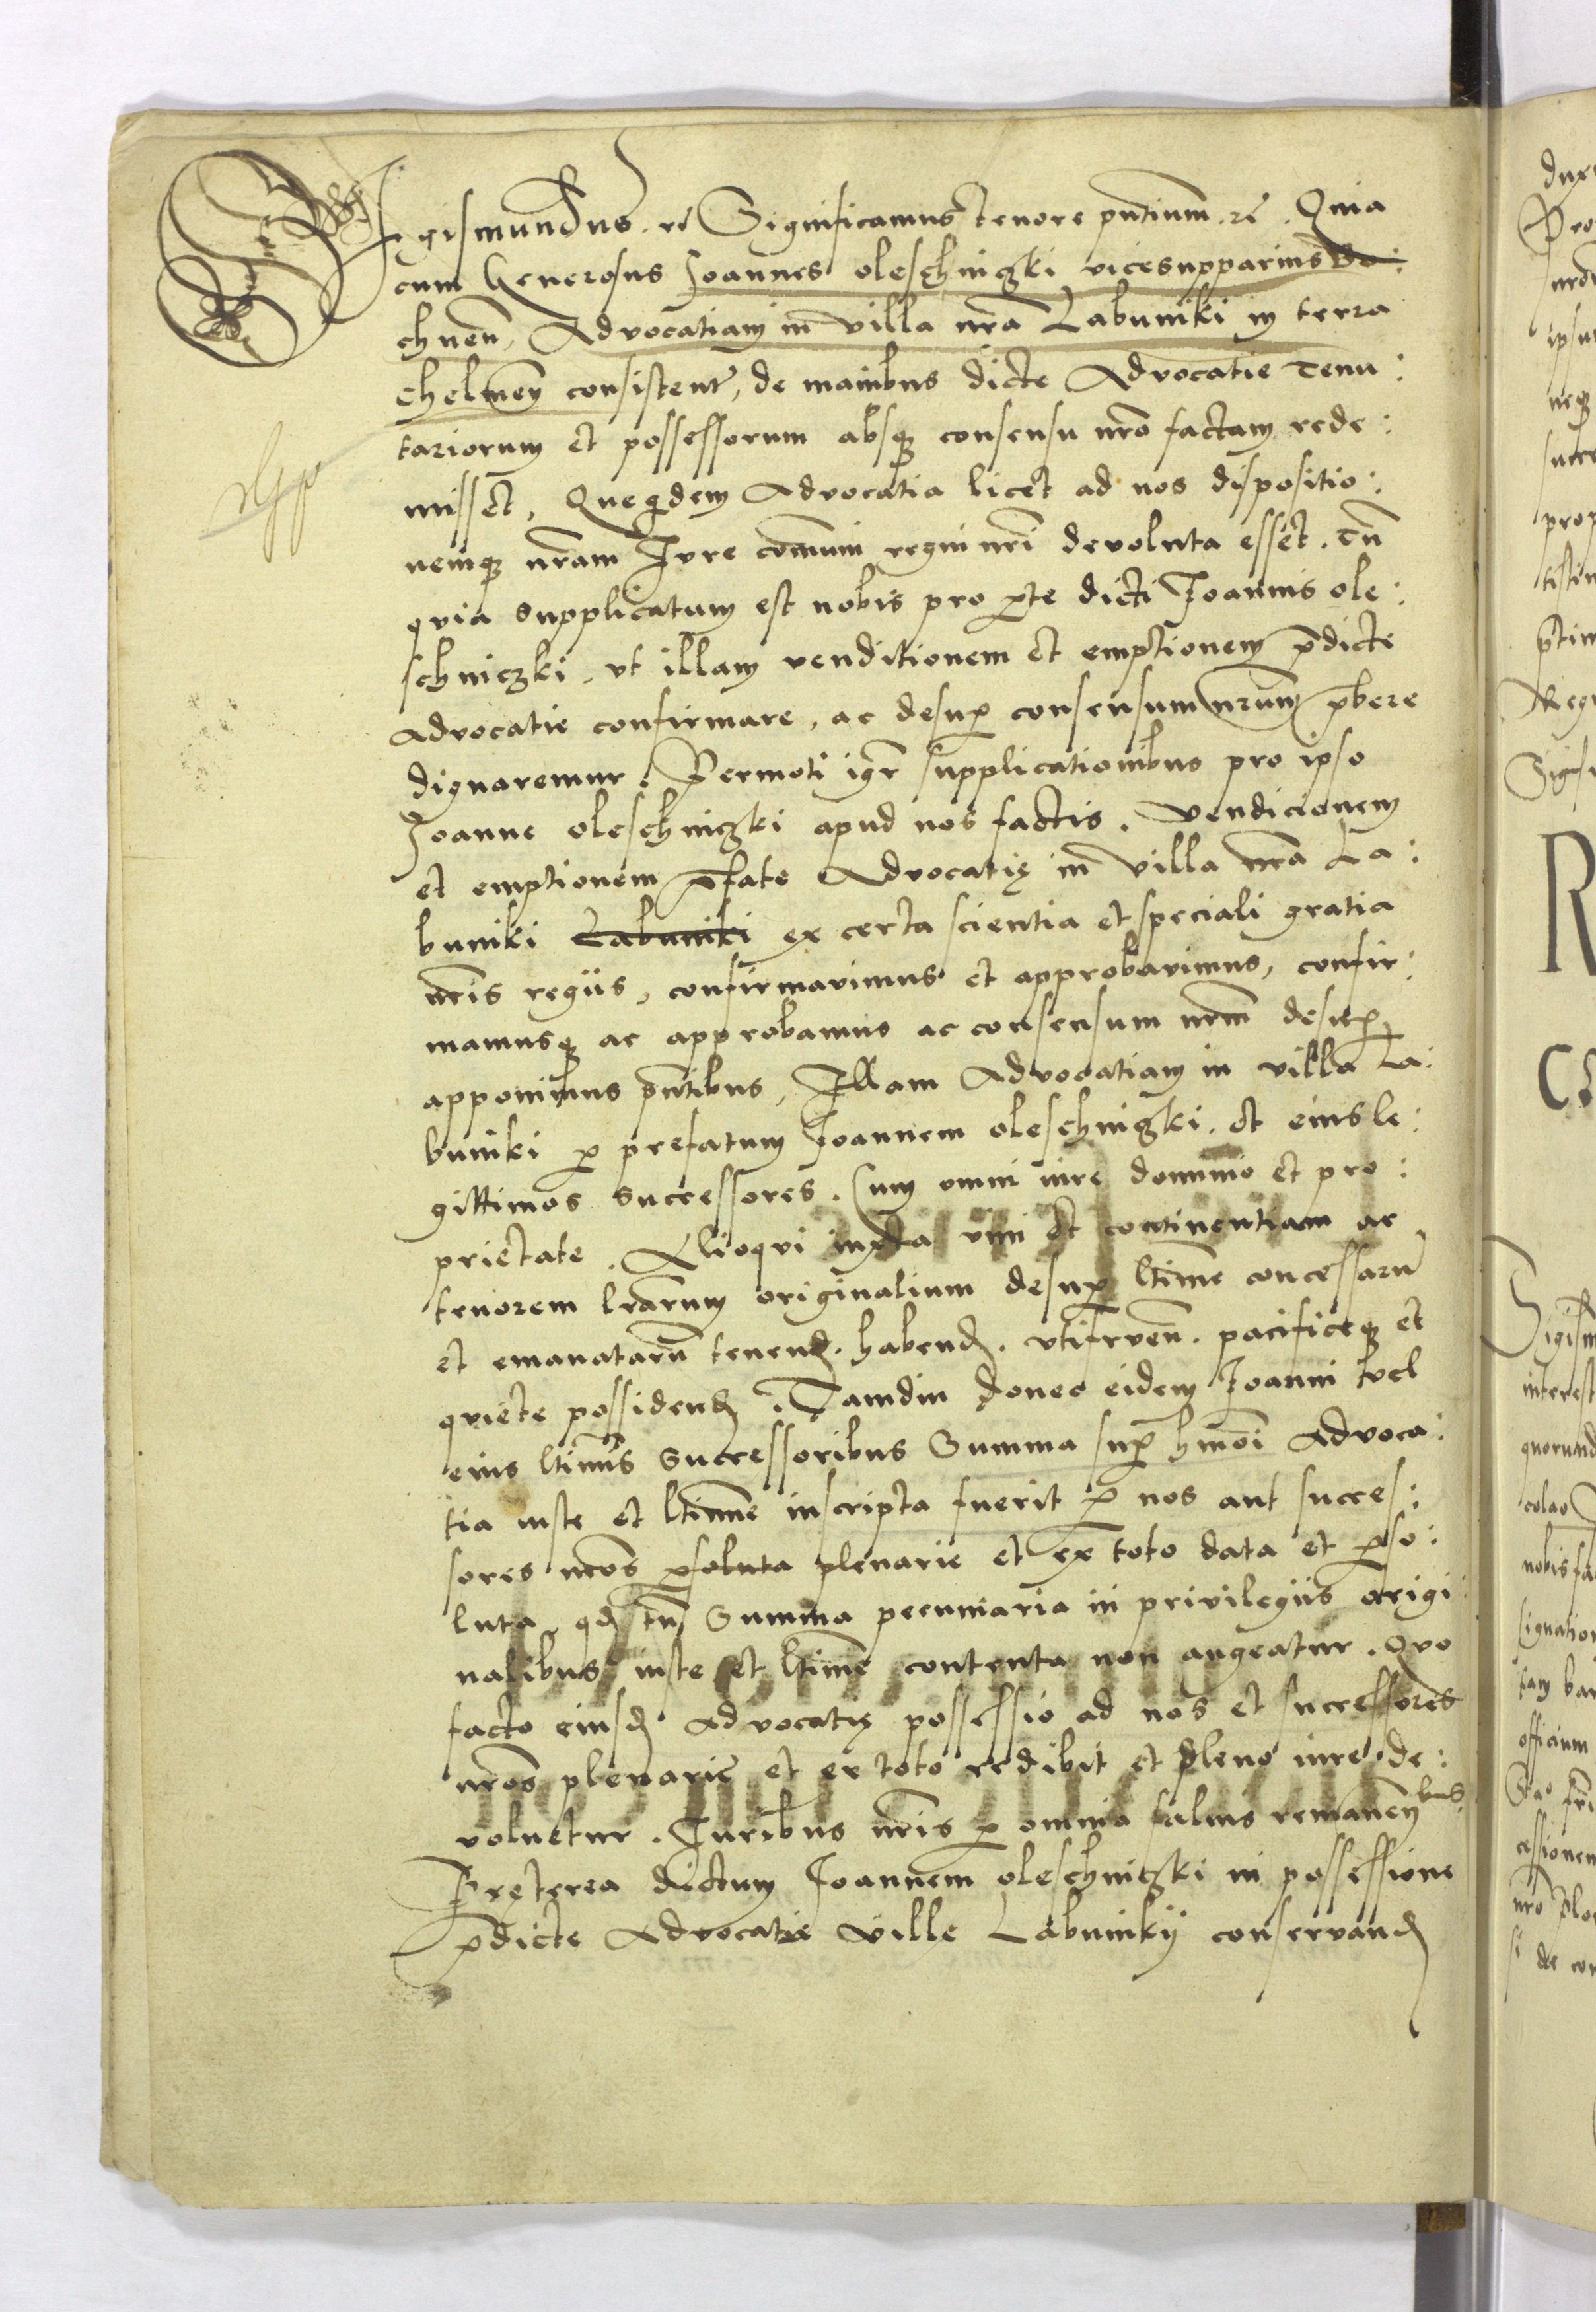 Sigismundus. rc̄ Significamus tenore pn̄tium. rc̄. Quia
cum Generosus Joannes oleschniczki vicesupparius Bo:
chnen̄, Advocatiam in villa nr̄a Labuniki in terra
Chelmen̄ consistent̄, de manibus dicte Advocatie Tenu:
tariorum et possessorum absq̨ consensu nr̄o factam rede:
misset, Queqd̄em Advocatia licet ad nos dispositio:
nemq̨ nr̄am Jure com̄uni regni nr̄i devoluta esset. Tn̄
qvia supplicatum est nobis pro p̄te dicti Joannis ole:
schniczki, vt illam venditionem et emptionem p̄dicte
Advocatie confirmare, ac desup̄ consensum nr̄um p̄bere
dignaremur. Permoti igr̄ supplicationibus pro ipso
Joanne oleschniczki apud nos factis. Vendicionem
et emptionem p̄fate Advocatię in villa nr̄a La:
buniki Labuniki ex certa scientia et speciali gratia
nr̄is regiis, confirmavimus et approbavimus, confir:
mamusq̨ ac approbamus ac consensum nr̄m desup̄
apponimus pn̄tibus, Illam Advocatiam in villa La:
buniki p̄ prefatum Joannem oleschniczki. et eius le:
gittimos successores. Cum omni iure dominio et pro:
prietate. Alioqvi iuxta vim et continentiam ac
tenorem lr̄arum originalium desup̄ ltīme concessarū
et emanatarū tenend̄. habend̄. vtifruen̄. pacificeq̨ et
qviete possidend̄. Tamdiu donec eidem Joanni vel
eius ltīmis Successoribus Summa sup̄ hm̄oi Advoca:
tia iuste et ltīme inscripta fuerit p̄ nos aut succes:
sores nr̄os p̄soluta plenarie et ex toto data et p̄so:
luta, qd̄ tn̄ Summa pecuniaria in privilegiis origi
nalibus iuste et ltīme contenta non augeatur. Qvo
facto eiusd̄ Advocatię possessio ad nos et successores
nr̄os plenarie et ex toto redibit et pleno iure de:
voluetur. Juribus nr̄is p̄ omnia salvis remanen̄bus.
Pręterea dictum Joannem oleschniczki in possessione
p̄dicte Advocatie ville Labunikij conservand̄